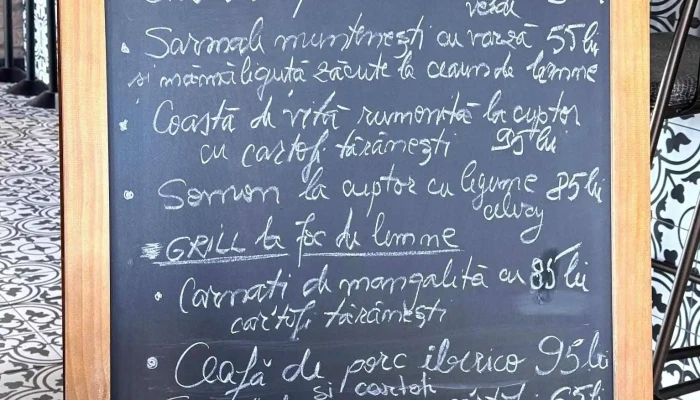 verde
• Sarmale muntenești cu varză 55 lei
și mămăliguță făcute la ceaun de lemne
• Coastă de vită rumenită la cuptor
cu cartofi țărănești 95 lei
• Somon la cuptor cu legume 85 lei
GRILL la foc de lemne
• Carnați de mangaliță cu 85 lei
cartofi țărănești
• Ceafă de porc iberico 95 lei
și cartofi
65 lei